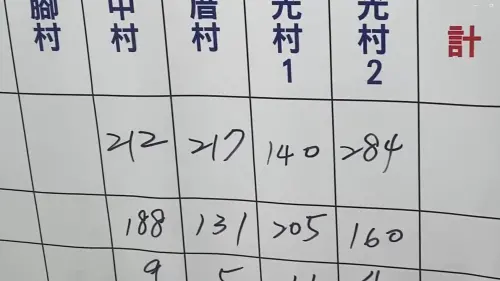 腳村 中村 厝村 光村1 光村2 計
212 217 140 284
188 131 205 160
9 5